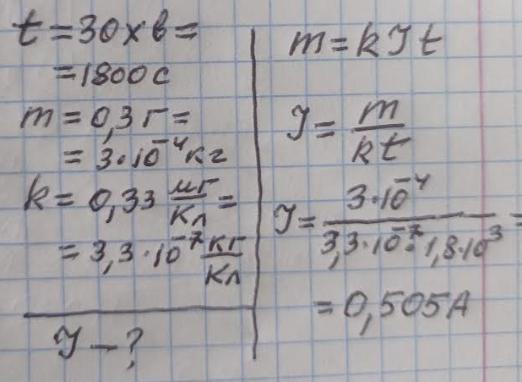 t = 30 хв =
= 1800 с
m = 0,3 г =
= 3·10⁻⁴ кг
k = 0,33 мг/Кл =
= 3,3·10⁻⁷ кг/Кл
I – ?
m = k I t
I = m/kt
I = 3·10⁻⁴/3,3·10⁻⁷·1,8·10³ =
= 0,505 А